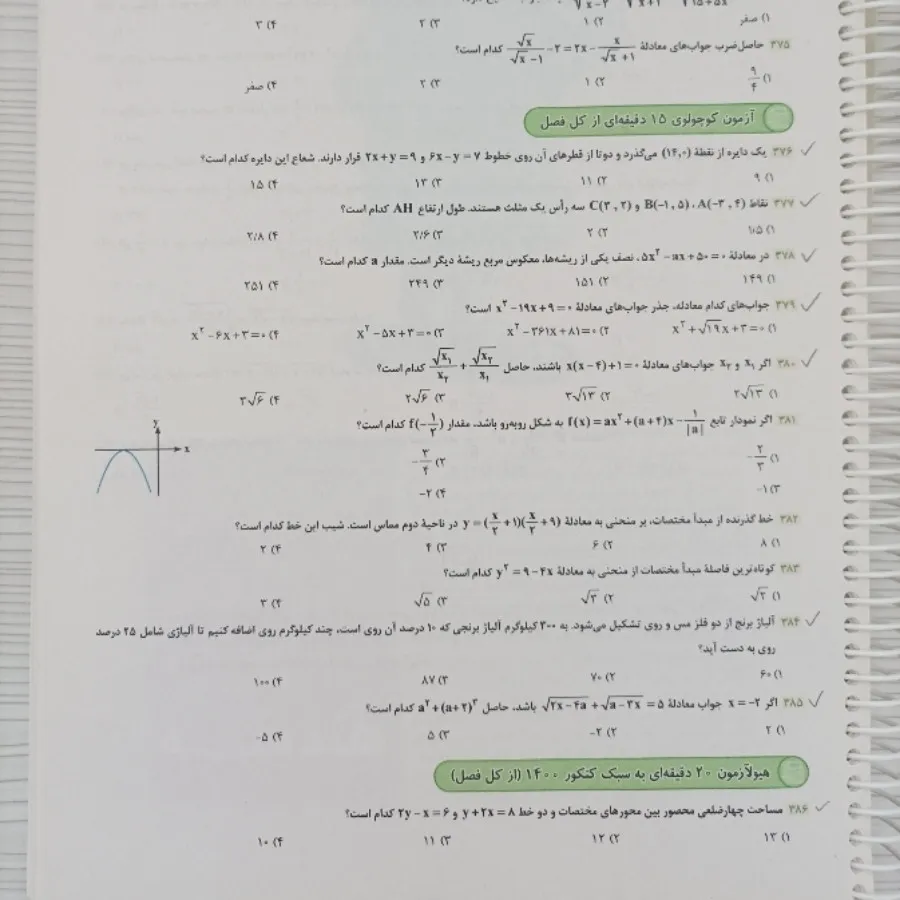 ۱) صفر ۲) ۱ ۳) ۲ ۴) ۳
۳۷۵ حاصل‌ضرب جواب‌های معادلهٔ √x/(√x −۱) −۲ = ۲x − x/(√x +۱) کدام است؟
۱) ۹/۴ ۲) ۱ ۳) ۲ ۴) صفر
آزمون کوچولوی ۱۵ دقیقه‌ای از کل فصل
۳۷۶ یک دایره از نقطهٔ (۱۴,۰) می‌گذرد و دوتا از قطرهای آن روی خطوط ۶x−y=۷ و ۲x+y=۹ قرار دارند. شعاع این دایره کدام است؟
۱) ۹ ۲) ۱۱ ۳) ۱۳ ۴) ۱۵
۳۷۷ نقاط A(−۳,۴)، B(−۱,۵) و C(۳,۲) سه رأس یک مثلث هستند. طول ارتفاع AH کدام است؟
۱) ۱/۵ ۲) ۲ ۳) ۲/۶ ۴) ۲/۸
۳۷۸ در معادلهٔ ۵x²−ax+۵۰=۰، نصف یکی از ریشه‌ها، معکوس مربع ریشهٔ دیگر است. مقدار a کدام است؟
۱) ۱۴۹ ۲) ۱۵۱ ۳) ۲۴۹ ۴) ۲۵۱
۳۷۹ جواب‌های کدام معادله، جذر جواب‌های معادلهٔ x²−۱۹x+۹=۰ است؟
۱) x²+√۱۹x+۳=۰ ۲) x²−۳۶۱x+۸۱=۰ ۳) x²−۵x+۳=۰ ۴) x²−۶x+۳=۰
۳۸۰ اگر x₁ و x₂ جواب‌های معادلهٔ x(x−۴)+۱=۰ باشند، حاصل √x₁/x₂ + √x₂/x₁ کدام است؟
۱) ۲√۱۳ ۲) ۳√۱۳ ۳) ۲√۶ ۴) ۳√۶
۳۸۱ اگر نمودار تابع f(x)=ax²+(a+۴)x−۱/|a| به شکل روبه‌رو باشد، مقدار f(−۱/۲) کدام است؟
y
x
۱) −۲/۳ ۲) −۳/۴
۳) −۱ ۴) −۲
۳۸۲ خط گذرنده از مبدأ مختصات، بر منحنی به معادلهٔ y=(x/۲+۱)(x/۲+۹) در ناحیهٔ دوم مماس است. شیب این خط کدام است؟
۱) ۸ ۲) ۶ ۳) ۴ ۴) ۲
۳۸۳ کوتاه‌ترین فاصلهٔ مبدأ مختصات از منحنی به معادلهٔ y²=۹−۴x کدام است؟
۱) √۲ ۲) √۳ ۳) √۵ ۴) ۳
۳۸۴ آلیاژ برنج از دو فلز مس و روی تشکیل می‌شود. به ۳۰۰ کیلوگرم آلیاژ برنجی که ۱۰ درصد آن روی است، چند کیلوگرم روی اضافه کنیم تا آلیاژی شامل ۲۵ درصد
روی به دست آید؟
۱) ۶۰ ۲) ۷۰ ۳) ۸۷ ۴) ۱۰۰
۳۸۵ اگر x=−۲ جواب معادلهٔ √(۲x−۴a)+√(a−۳x)=۵ باشد، حاصل a²+(a+۲)³ کدام است؟
۱) ۲ ۲) −۲ ۳) ۵ ۴) −۵
هیولآزمون ۲۰ دقیقه‌ای به سبک کنکور ۱۴۰۰ (از کل فصل)
۳۸۶ مساحت چهارضلعی محصور بین محورهای مختصات و دو خط y+۲x=۸ و ۲y−x=۶ کدام است؟
۱) ۱۳ ۲) ۱۲ ۳) ۱۱ ۴) ۱۰